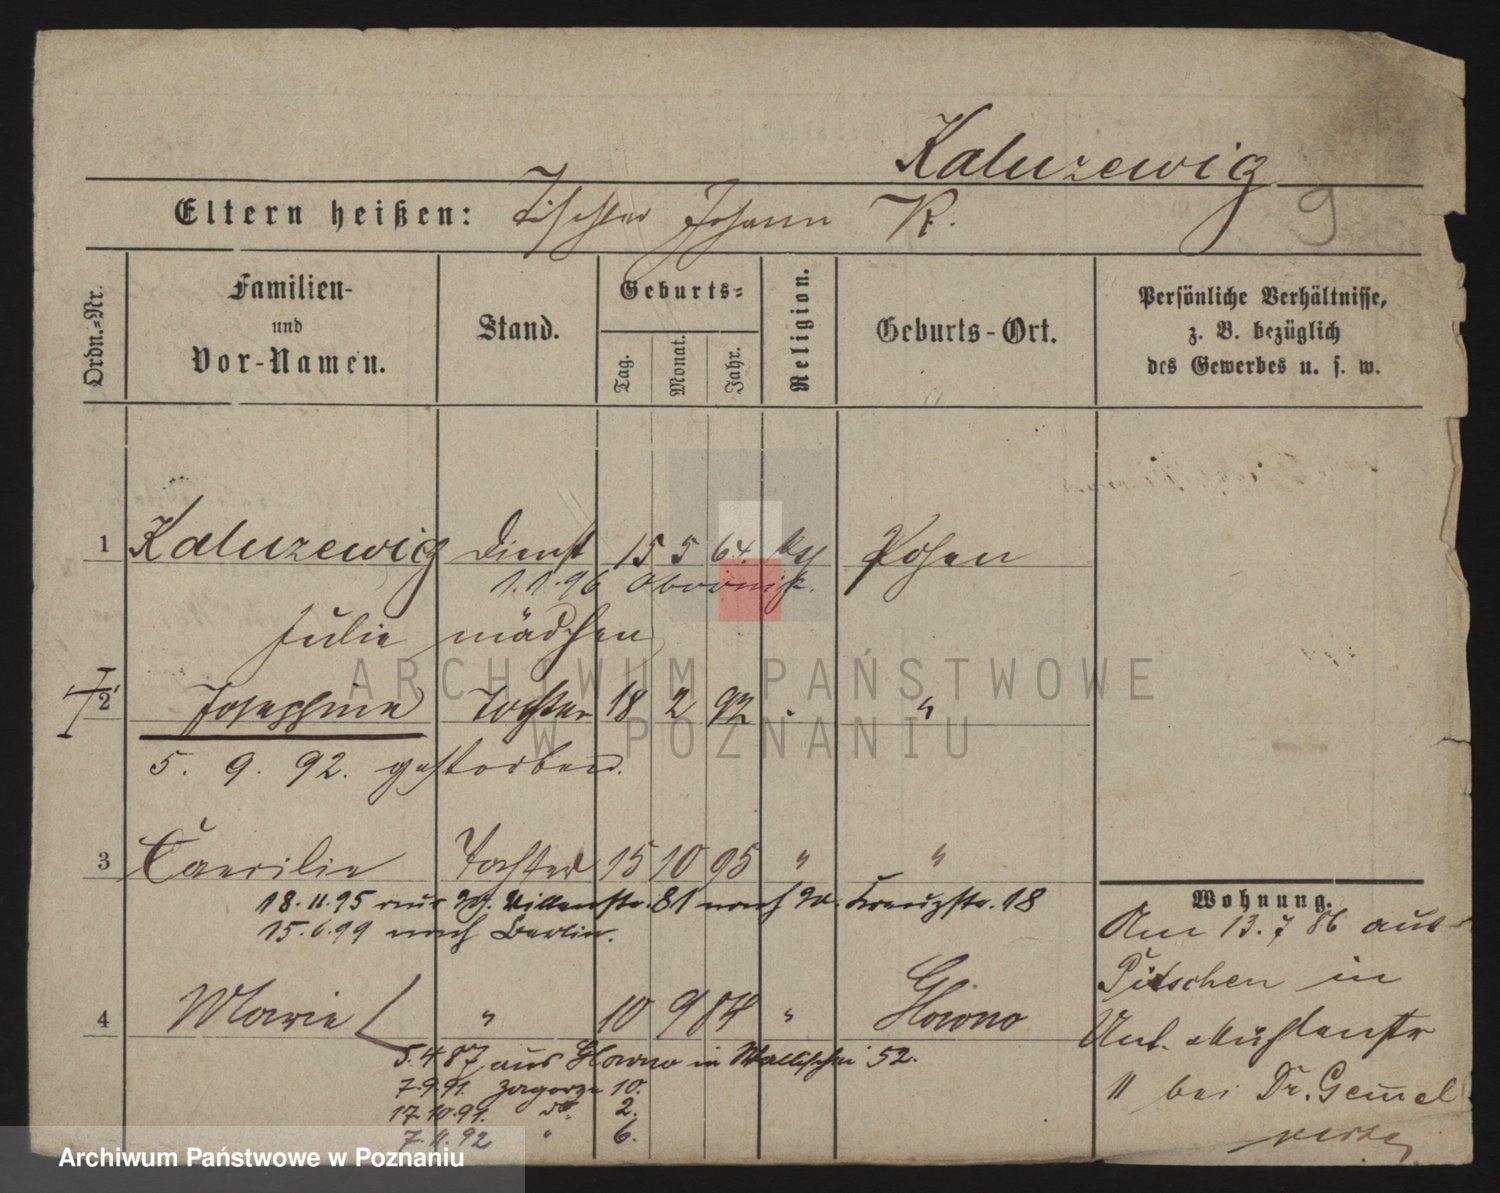 Kaluzewig
9
Eltern heißen: Tischler Johann K.
Ordn.-Nr.
Familien-
und
Vor-Namen.
Stand.
Geburts-
Tag.
Monat.
Jahr.
Religion.
Geburts-Ort.
Persönliche Verhältnisse,
z. B. bezüglich
des Gewerbes u. s. w.
1 Kaluzewig Dienst 15 5 64. Posen
1.1.96
Julie mädchen
2 Josephine Tochter 18 2 92 "
5. 9. 92. gestorben.
3 Caecilie Tochter 15 10 95 " "
18.11.95 aus 81 nach Kreuzstr. 18
15.6.99 nach Berlin.
4 Marie " 10 9 84 " Glowno
5.4.87 aus Glowno in Wallischei 52.
7.9.91. Zagorze 10.
17.10.91. do 2.
7.11.92 " 6.
Wohnung.
Am 13.7 86 aus
Pitschen in
Unt. Mühlenstr
11 bei Dr. Gem̅el
ARCHIWUM PAŃSTWOWE
W POZNANIU
Archiwum Państwowe w Poznaniu